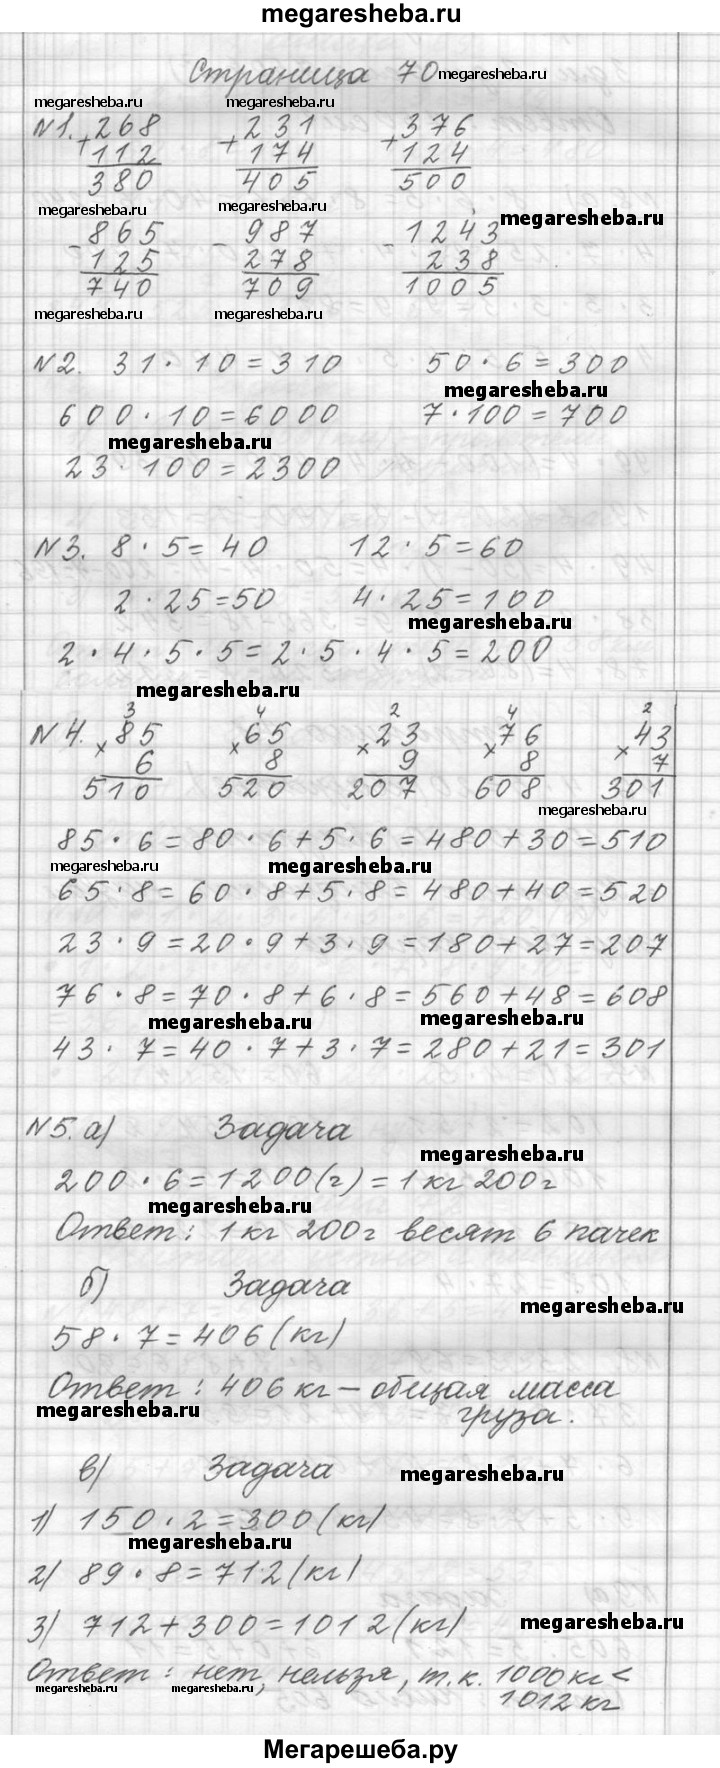 megaresheba.ru
Страница 70 megaresheba.ru
megaresheba.ru megaresheba.ru
№1. 268 231 376
+ 112 + 174 + 124
380 405 500
megaresheba.ru megaresheba.ru megaresheba.ru
- 865 - 987 - 1243
125 278 238
740 709 1005
megaresheba.ru megaresheba.ru
№2. 31 · 10 = 310 50 · 6 = 300
megaresheba.ru
600 · 10 = 6000 7 · 100 = 700
megaresheba.ru
23 · 100 = 2300
№3. 8 · 5 = 40 12 · 5 = 60
2 · 25 = 50 4 · 25 = 100
megaresheba.ru
2 · 4 · 5 · 5 = 2 · 5 · 4 · 5 = 200
megaresheba.ru
3 4 2 4 2
№4. × 85 × 65 × 23 × 76 × 43
6 8 9 8 7
510 520 207 608 301
megaresheba.ru
85 · 6 = 80 · 6 + 5 · 6 = 480 + 30 = 510
megaresheba.ru megaresheba.ru
65 · 8 = 60 · 8 + 5 · 8 = 480 + 40 = 520
23 · 9 = 20 · 9 + 3 · 9 = 180 + 27 = 207
76 · 8 = 70 · 8 + 6 · 8 = 560 + 48 = 608
megaresheba.ru megaresheba.ru
43 · 7 = 40 · 7 + 3 · 7 = 280 + 21 = 301
№5. а) Задача
megaresheba.ru
200 · 6 = 1200 (г) = 1 кг 200 г
megaresheba.ru
Ответ: 1 кг 200 г весят 6 пачек
б) Задача
megaresheba.ru
58 · 7 = 406 (кг)
Ответ: 406 кг – общая масса
megaresheba.ru груза.
в) Задача
megaresheba.ru
1) 150 · 2 = 300 (кг)
megaresheba.ru
2) 89 · 8 = 712 (кг)
3) 712 + 300 = 1012 (кг)
megaresheba.ru
Ответ: нет, нельзя, т.к. 1000 кг <
megaresheba.ru megaresheba.ru 1012 кг
Мегарешеба.ру